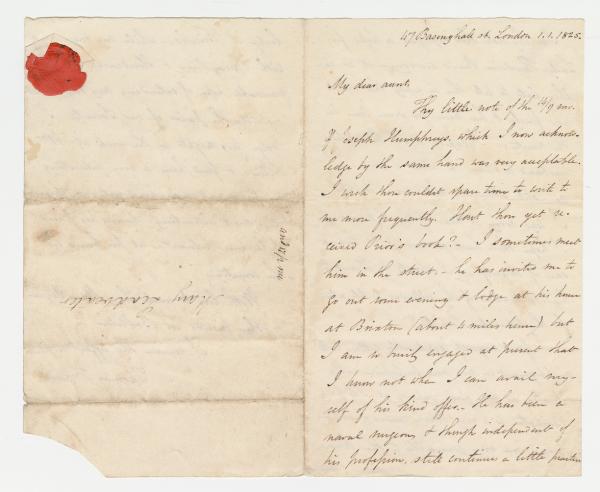 47 Basinghale st. London 1.1.1825.
My dear aunt,
Thy little note of the 14/9 mo.
Joseph Humphreys, which I now acknow-
ledge by the same hand was very acceptable.
I wish thou couldst spare time to write to
me more frequently. Hast thou yet re-
ceived Prior's book? - I sometimes meet
him in the street - he has invited me to
go out some evening & lodge at his house
at Brixton (about 4 miles hence) but
I am so busily engaged at present that
I know not when I can avail my-
self of his kind offer. - He has been a
naval surgeon & though independent of
his profession, still continues a little practice
Mary Leadbeater